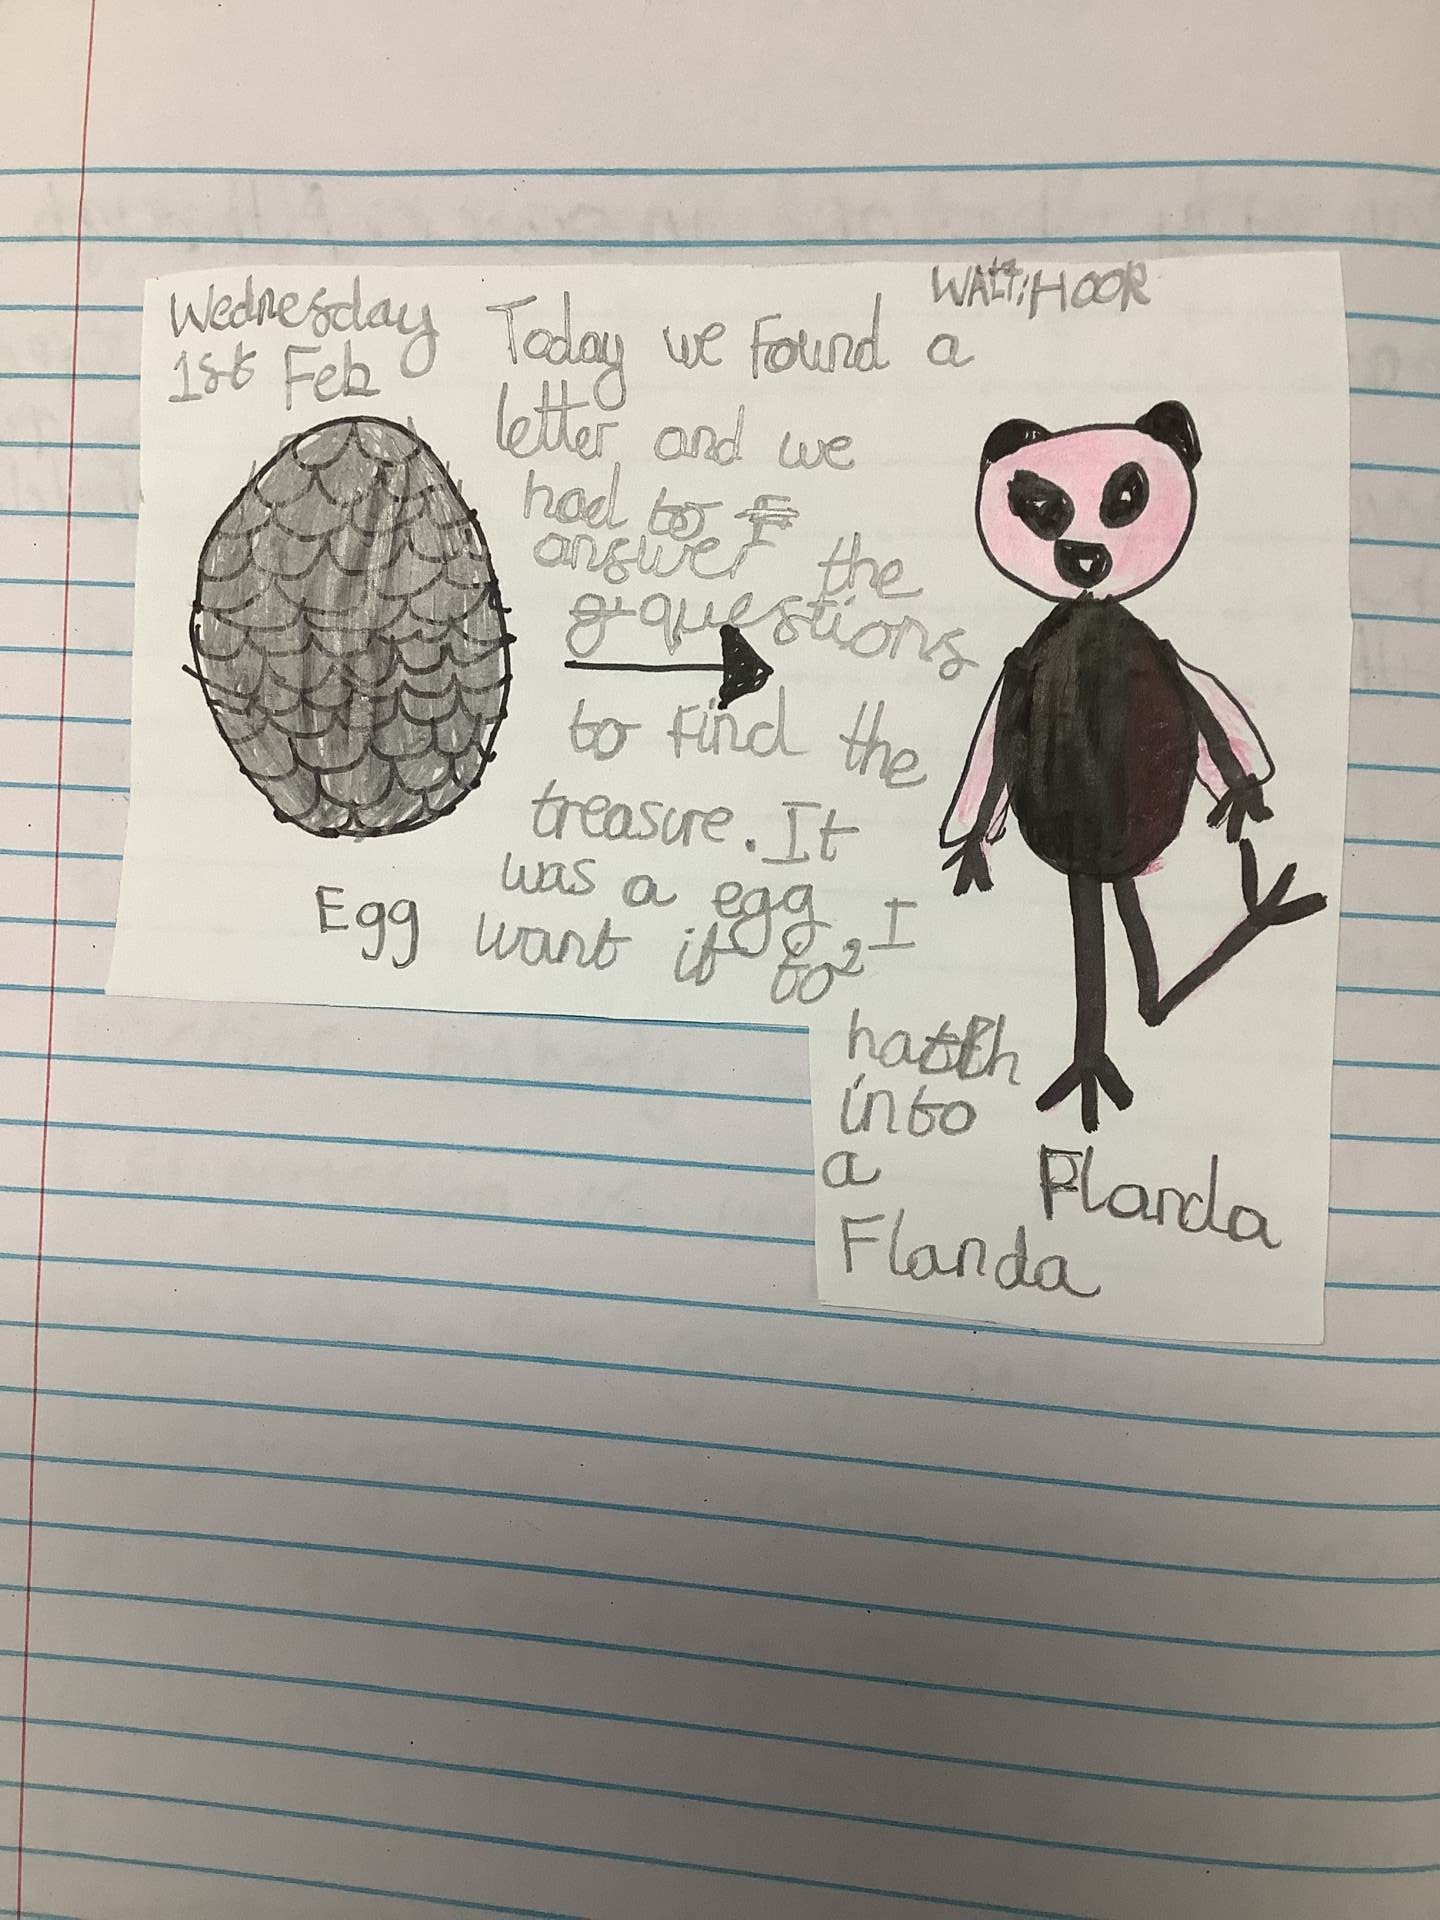 Wednesday
1st Feb
WALTiHOOR
Today we found a
letter and we
had to F
answer the
g questions
to find the
treasure. It
was a egg, I
want it to
hatch
into
a
Flanda
Egg
Flanda